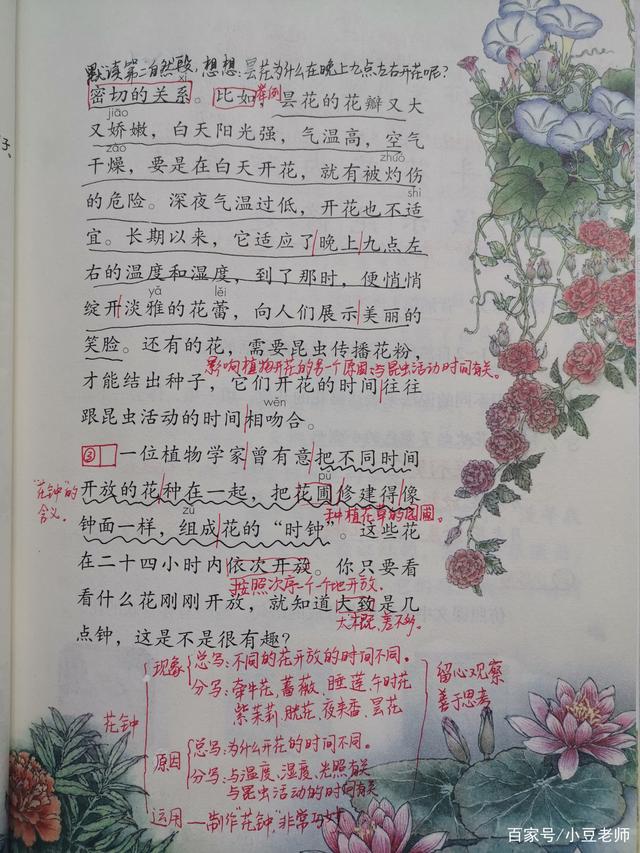 默读第二自然段,想想:昙花为什么在晚上九点左右开花呢?
xì
密切的关系。比如昙花的花瓣又大
举例
jiāo
又娇嫩,白天阳光强,气温高,空气
zào zhuó
干燥,要是在白天开花,就有被灼伤
shì
的危险。深夜气温过低,开花也不适
宜。长期以来,它适应了晚上九点左
右的温度和湿度,到了那时,便悄悄
yǎ lěi
绽开淡雅的花蕾,向人们展示美丽的
笑脸。还有的花,需要昆虫传播花粉,
影响植物开花的另一个原因:与昆虫活动时间有关。
才能结出种子,它们开花的时间往往
wěn
跟昆虫活动的时间相吻合。
③ 一位植物学家曾有意把不同时间
pǔ
"花钟"的
含义。
开放的花种在一起,把花圃修建得像
种植花草的园圃。
zǔ
钟面一样,组成花的“时钟”。这些花
在二十四小时内依次开放。你只要看
按照次序一个个地开放。
看什么花刚刚开放,就知道大致是几
大概,差不多。
点钟,这是不是很有趣?
花钟
现象
总写:不同的花开放的时间不同。
分写:牵牛花,蔷薇、睡莲,午时花
紫茉莉,烟花,夜来香、昙花
原因
总写:为什么开花的时间不同。
分写:与温度、湿度,光照有关
与昆虫活动的时间有关
运用—制作"花钟"非常巧妙
留心观察
善于思考
百家号/小豆老师